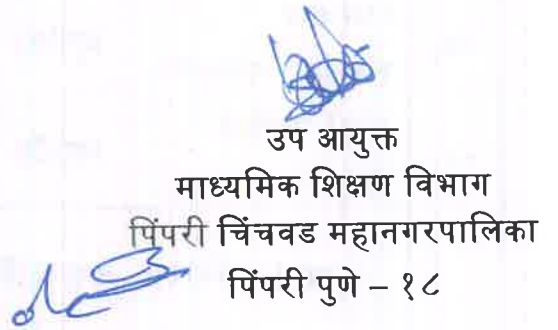 उप आयुक्त
माध्यमिक शिक्षण विभाग
पिंपरी चिंचवड महानगरपालिका
पिंपरी पुणे – १८